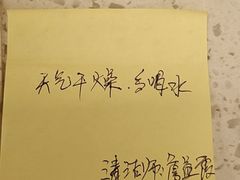 天气干燥.多喝水
清洁师:詹益霞